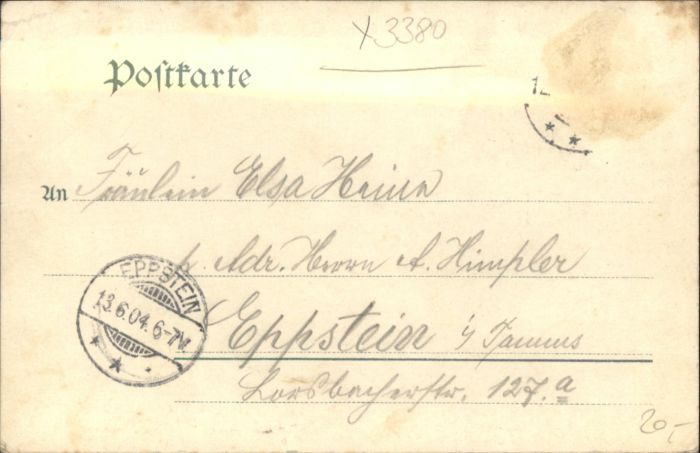 x3380
Postkarte
12
An Fräulein Elsa Heinen
p. Adr. Herrn A. Himpler
EPPSTEIN
13.6.04.6-7N.
Eppstein i/Taunus
Lorsbacherstr. 127.a
20,-